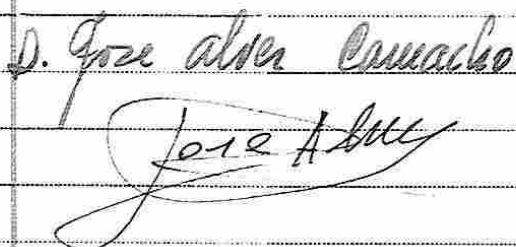 D. Jose alves Camacho
Jose A